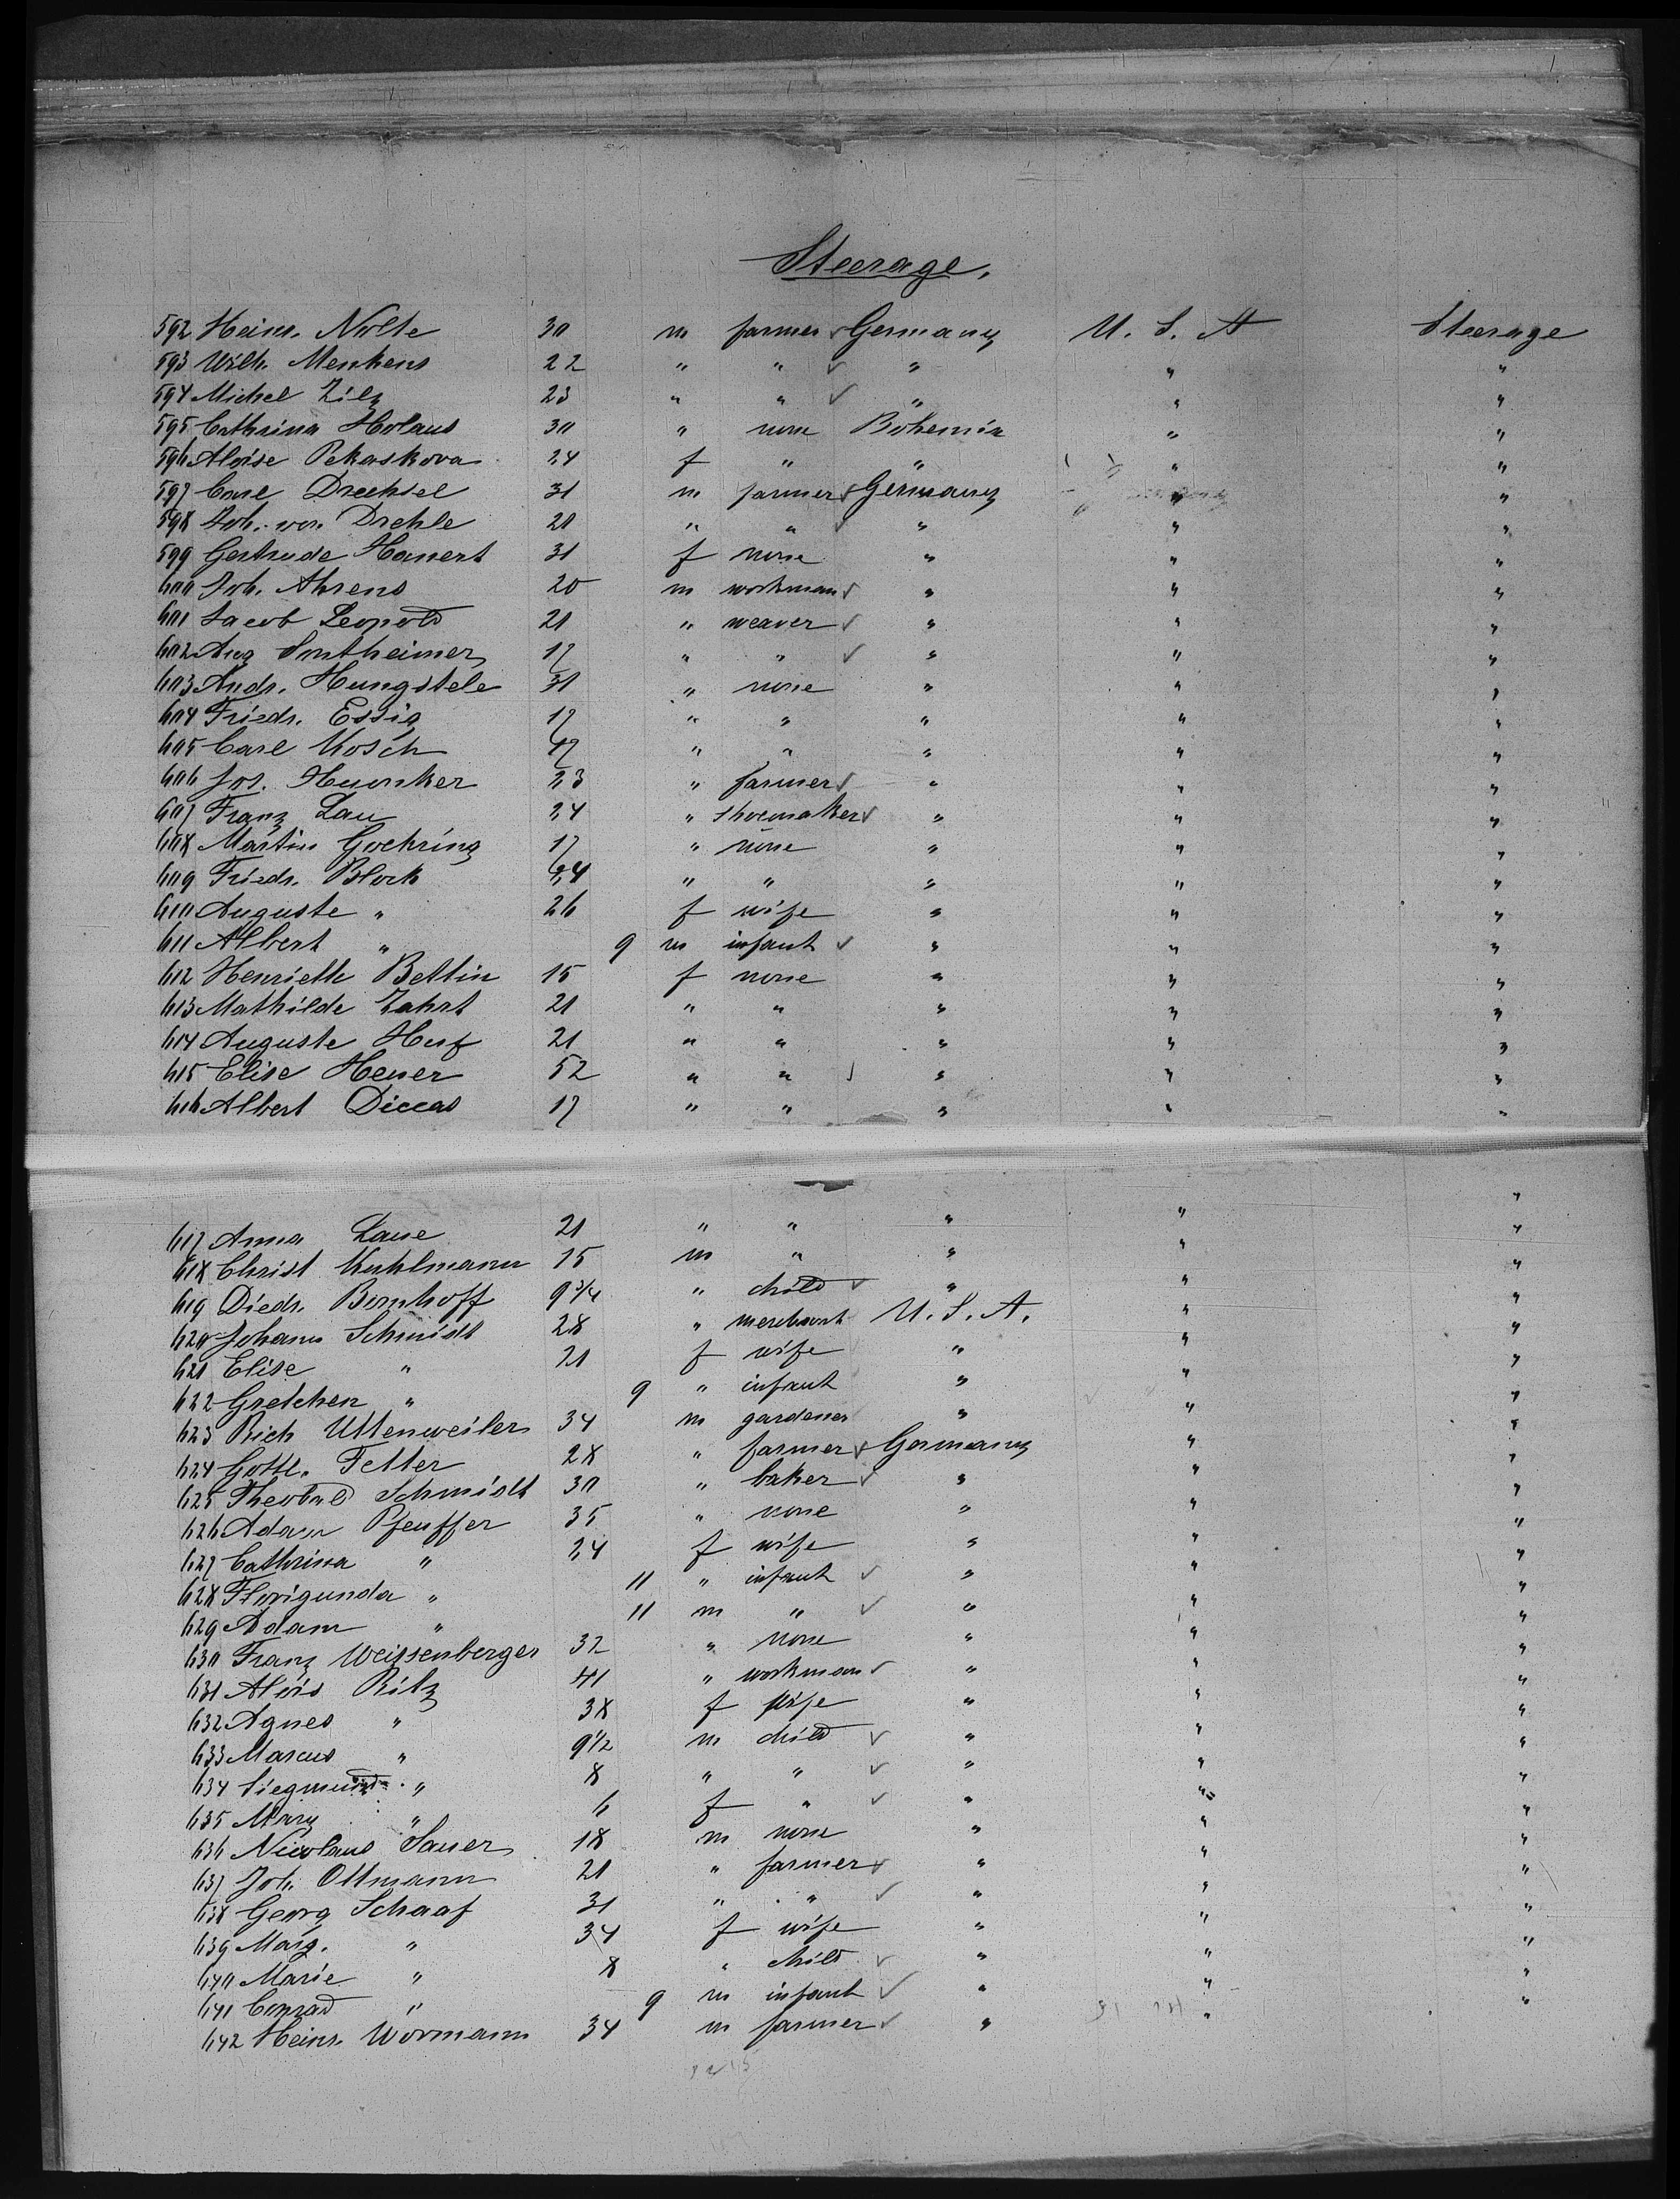 Steerage.
592 Heinr. Nolte 30 m farmer Germany U. S. A Steerage
593 Wilh. Menkens 22 " " " " "
594 Michel Zilz 23 " " " " "
595 Cathrina Holaus 30 " none Bohemia " "
596 Aloise Pekaskova 24 f " " " "
597 Carl Drechsel 31 m farmer Germany " "
598 Joh. von Drehle 20 " " " " "
599 Gertrude Hanert 31 f none " " "
600 Joh. Ahrens 20 m workman " " "
601 Jacob Leopold 21 " weaver " " "
602 Aug Sontheimer 17 " " " " "
603 Andr. Hungstele 31 " none " " "
604 Friedr. Essig 17 " " " " "
605 Carl Kosch 47 " " " " "
606 Jos. Huonker 23 " farmer " " "
607 Franz Lau 24 " shoemaker " " "
608 Martin Goehring 17 " none " " "
609 Friedr. Block 34 " " " " "
610 Auguste " 26 f wife " " "
611 Albert " 9 m infant " " "
612 Henriette Bettin 15 f none " " "
613 Mathilde Zahrt 21 " " " " "
614 Auguste Huf 21 " " " " "
615 Elise Heuer 52 " " " " "
616 Albert Diccas 17 " " " " "
617 Anna Laue 21 " " " " "
618 Christ Kuhlmann 15 m " " " "
619 Diedr. Bornhoff 9 3/4 " child " " "
620 Johann Schmidt 28 " merchant U. S. A. " "
621 Elise " 21 f wife " " "
622 Gretchen " 9 " infant " " "
623 Rich Uttenweiler 34 m gardener " " "
624 Gottl. Fetter 28 " farmer Germany " "
625 Theobald Schmidt 30 " baker " " "
626 Adam Pfeuffer 35 " none " " "
627 Cathrina " 24 f wife " " "
628 Florigunda " 11 " infant " " "
629 Adam " 11 m " " " "
630 Franz Weissenberger 32 " none " " "
631 Alois Ritz 41 " workman " " "
632 Agnes " 38 f wife " " "
633 Marcus " 9 1/2 m child " " "
634 Siegmund " 8 " " " " "
635 Mary " 6 f " " " "
636 Nicolaus Sauer 18 m none " " "
637 Joh. Ottmann 21 " farmer " " "
638 Georg Schaaf 31 " " " " "
639 Marg. " 34 f wife " " "
640 Marie " 8 " child " " "
641 Conrad " 9 m infant " " "
642 Heinr. Wormann 34 m farmer " " "